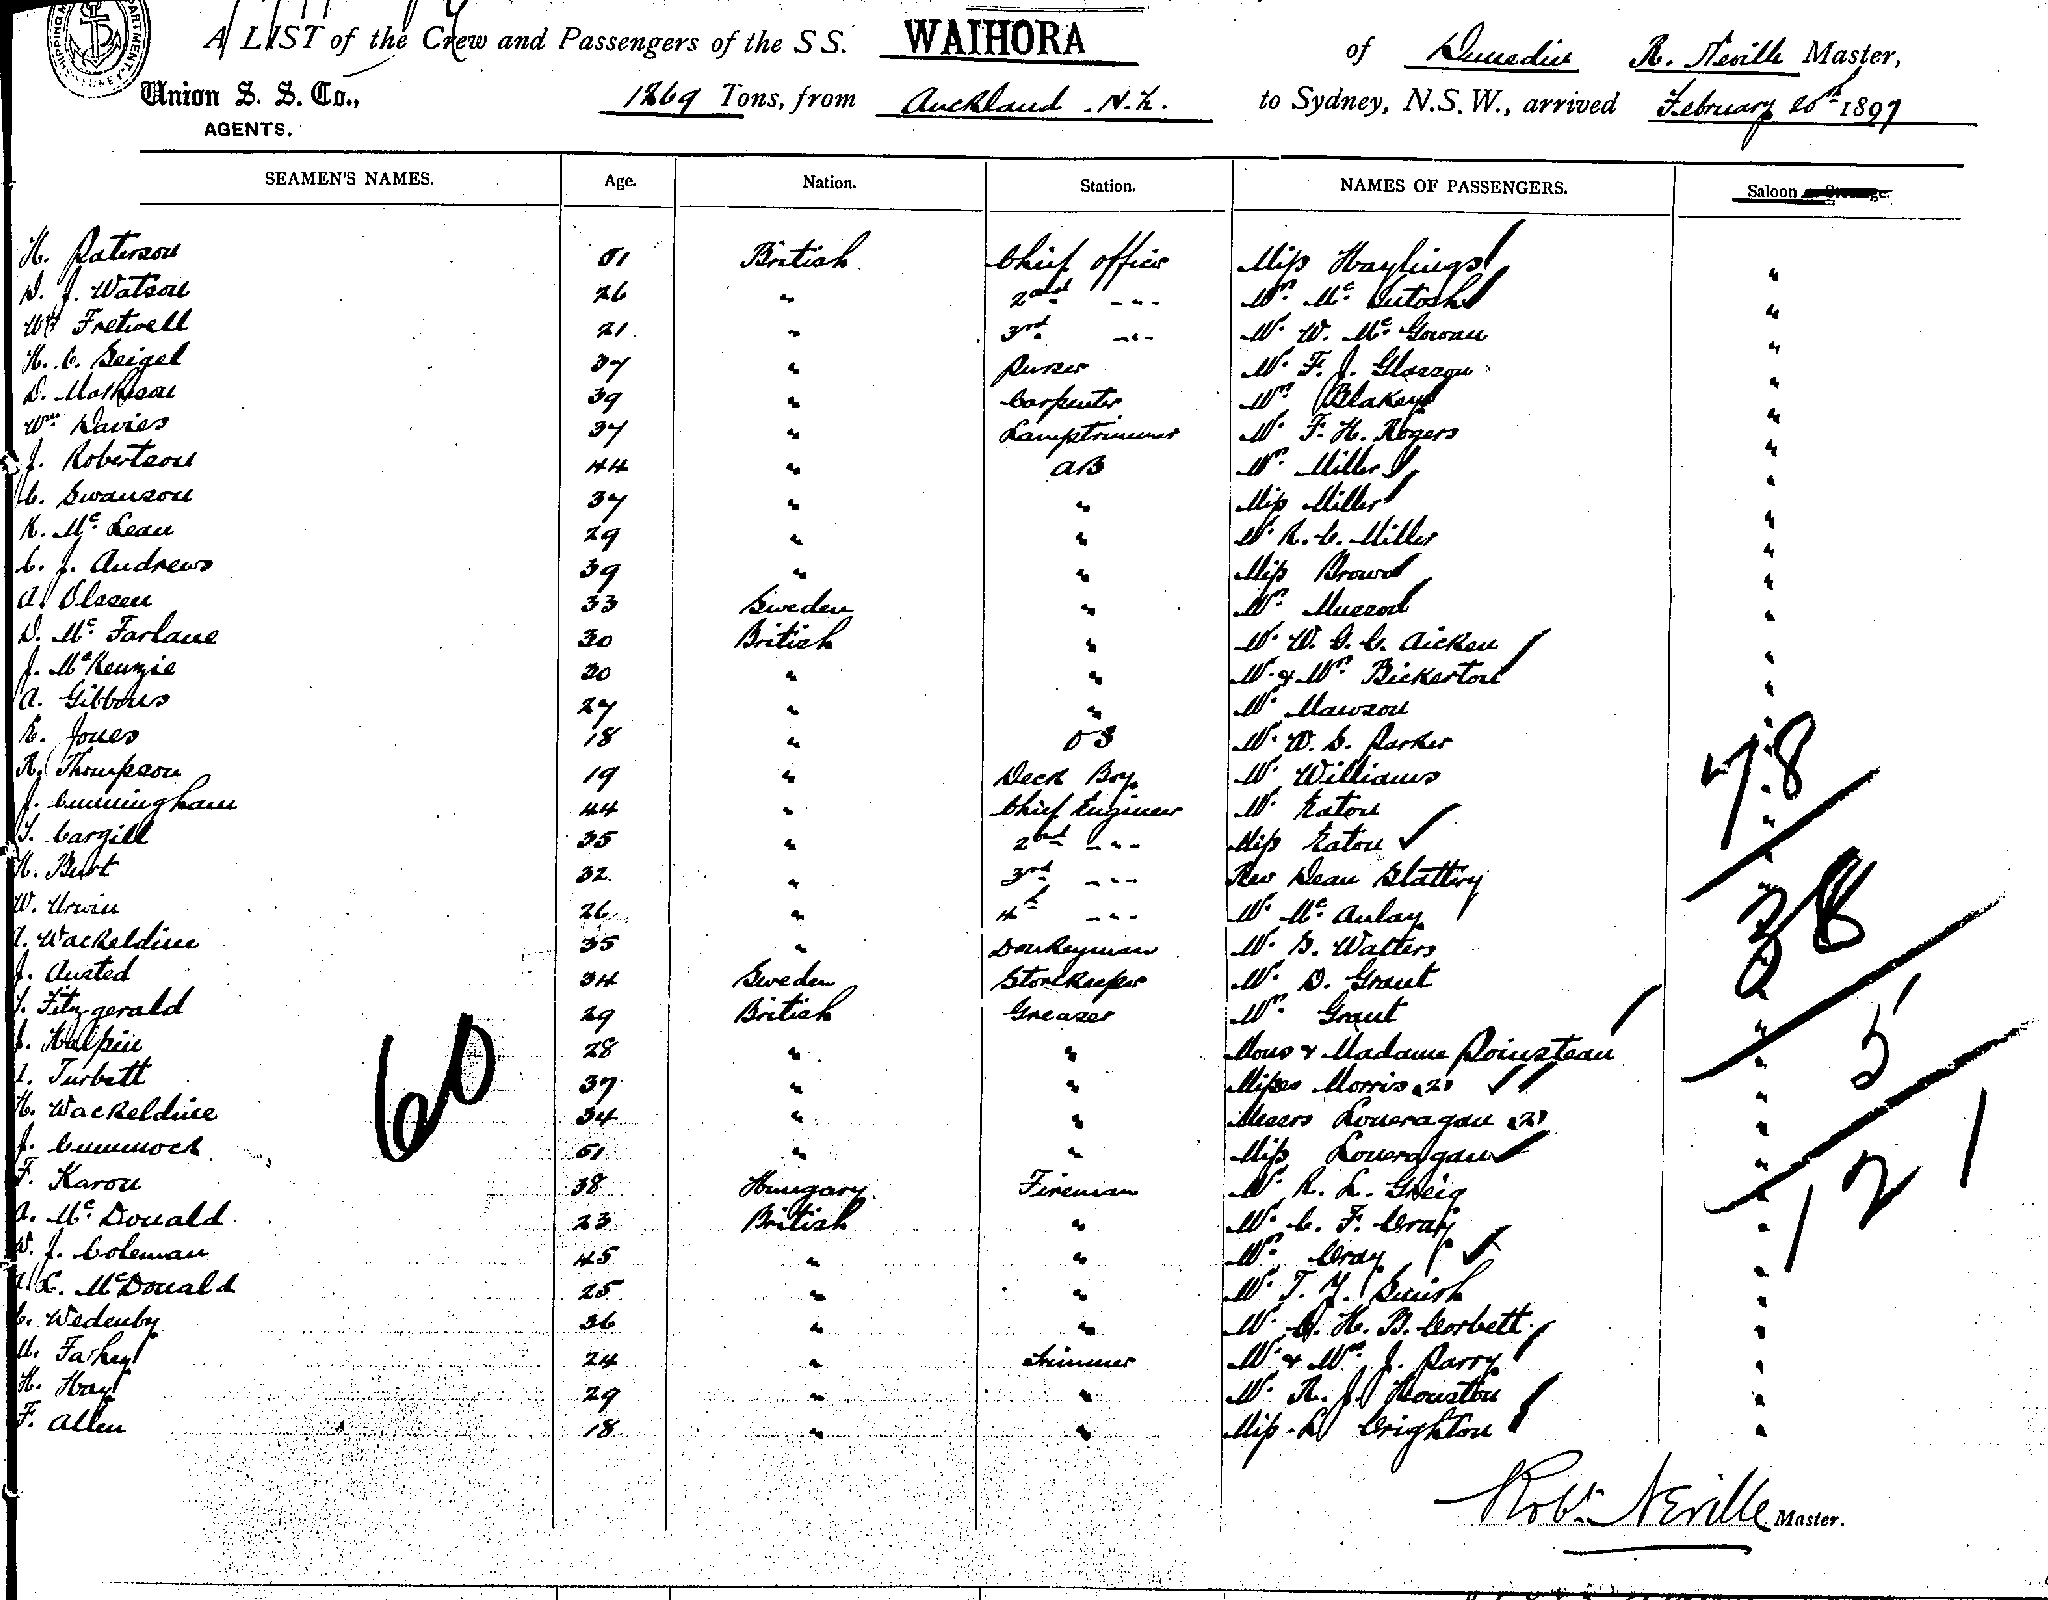 A LIST of the Crew and Passengers of the S S. WAIHORA of Dunedin R. Neville Master,
Union S. S. Co., 1269 Tons, from Auckland N.Z. to Sydney, N.S.W., arrived February 20th 1897
AGENTS.
SEAMEN'S NAMES. Age. Nation. Station. NAMES OF PASSENGERS. Saloon
H. Paterson 51 British Chief officer Miss Haylings "
D. J. Watson 26 " 2nd -"- Mrs McIntosh "
Wm Fretwell 21 " 3rd -"- Mr W. McGowan "
H. C. Geigel 37 " Purser Mr F. J. Glasson "
D. Mathison 39 " Carpenter Mrs Blakey "
Wm Davies 37 " Lamptrimmer Mr F. H. Rogers "
J. Robertson 44 " AB Mrs Miller "
C. Swanson 37 " " Miss Miller "
K. McLean 29 " " Mr R. C. Miller "
C. J. Andrews 39 " " Miss Brown "
A. Olssen 33 Sweden " Mrs "
D. McFarlane 30 British " Mr W. G. C. Aicken "
J. McKenzie 30 " " Mr & Mrs Bickerton "
A. Gibbons 27 " " Mr Mawson "
E. Jones 18 " OS Mr W. S. Parker "
R. Thompson 19 " Deck Boy Mr Williams "
J. Cunningham 44 " Chief Engineer Mr Eaton "
T. Cargill 35 " 2nd -"- Miss Eaton "
H. Burt 32 " 3rd -"- Rev Dean Slattery "
W. Urwin 26 " 4th -"- Mr McAulay "
Wackeldine 35 " Donkeyman Mr G. Walters "
J. Austed 34 Sweden Storekeeper Mr D. Grant "
Fitzgerald 29 British Greaser Mrs Grant "
Halpin 28 " " Mons & Madame Poinsteau "
Turbett 37 " " Misses Morris (2) "
H. Wackeldine 34 " " Messrs Loneragan (2) "
J. Cummock 51 " " Miss Loneragan "
F. Karon 38 Hungary Fireman Mr R. L. Greig "
A. McDonald 23 British " Mr C. F. Cray "
W. J. Coleman 45 " " Mrs Cray "
L. McDonald 25 " " Mr T. "
C. Wedenby 36 " " Mr H. B. Corbett "
M. Fahey 24 " Trimmer Mr & Mrs J. Parry "
H. Hay 29 " " Mr R. J. Houston "
F. Allen 18 " " Miss L Crighton "
60
78
38
5
121
Robt. Neville Master.